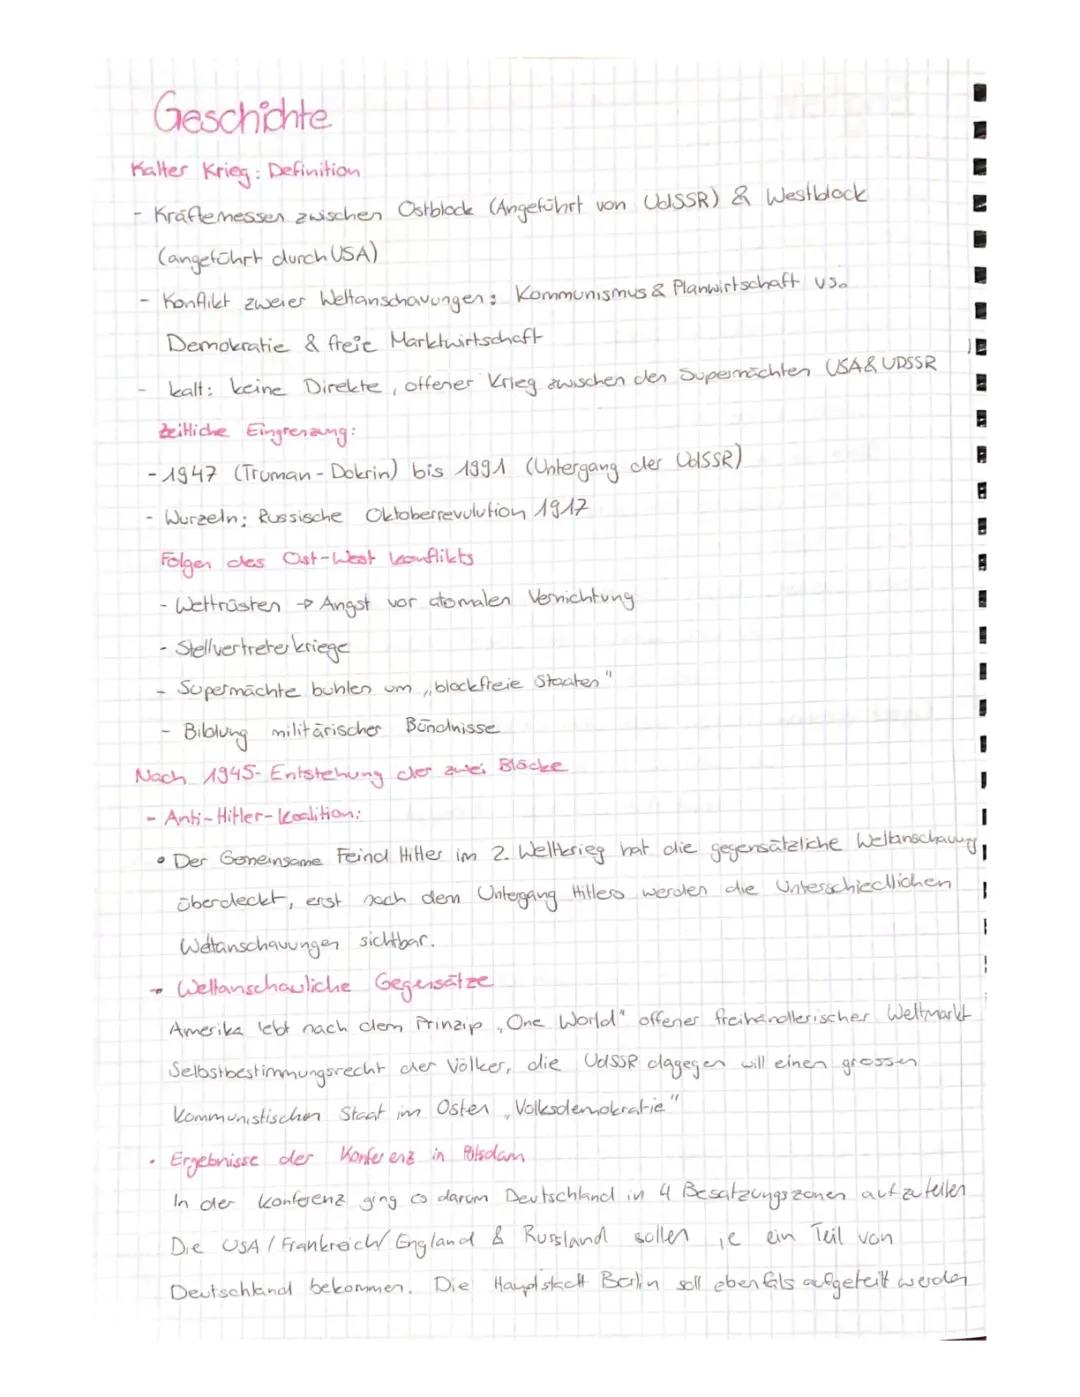 Geschichte
Kalter Krieg: Definition
- Kräftemessen zwischen Ostblock (Angeführt von UdSSR) & Westblock
(angeführt durch USA)
- Konflikt zweier Weltanschauungen: Kommunismus & Planwirtschaft vs.
Demokratie & freie Marktwirtschaft
- kalt: keine Direkte, offener Krieg zwischen den Supermächten USA & UDSSR
zeitliche Eingrenzung:
- 1947 (Truman-Dokrin) bis 1991 (Untergang der UdSSR)
- Wurzeln: Russische Oktoberrevulution 1917
Folgen des Ost-West konflikts
- Wettrüsten → Angst vor atomalen Vernichtung
- Stellvertreterkriege
- Supermächte buhlen um „blockfreie Staaten"
- Bildung militärischer Bündnisse
Nach 1945- Entstehung der zwei Blöcke
- Anti-Hitler-Koalition:
• Der Gemeinsame Feind Hitler im 2. Weltkrieg hat die gegensätzliche Weltanschauung
überdeckt, erst nach dem Untergang Hitlers werden die Unterschiedlichen
Weltanschauungen sichtbar.
→ Weltanschauliche Gegensätze
Amerika lebt nach dem Prinzip „One World" offener freihändlerischer Weltmarkt
Selbstbestimmungsrecht der Völker, die UdSSR dagegen will einen grossen
kommunistischen Staat im Osten „Volksdemokratie"
• Ergebnisse der Konferenz in Potsdam
In der Konferenz ging es darum Deutschland in 4 Besatzungszonen aufzuteilen
Die USA/Frankreich/England & Russland sollen je ein Teil von
Deutschland bekommen. Die Hauptstadt Berlin soll ebenfals aufgeteilt werden